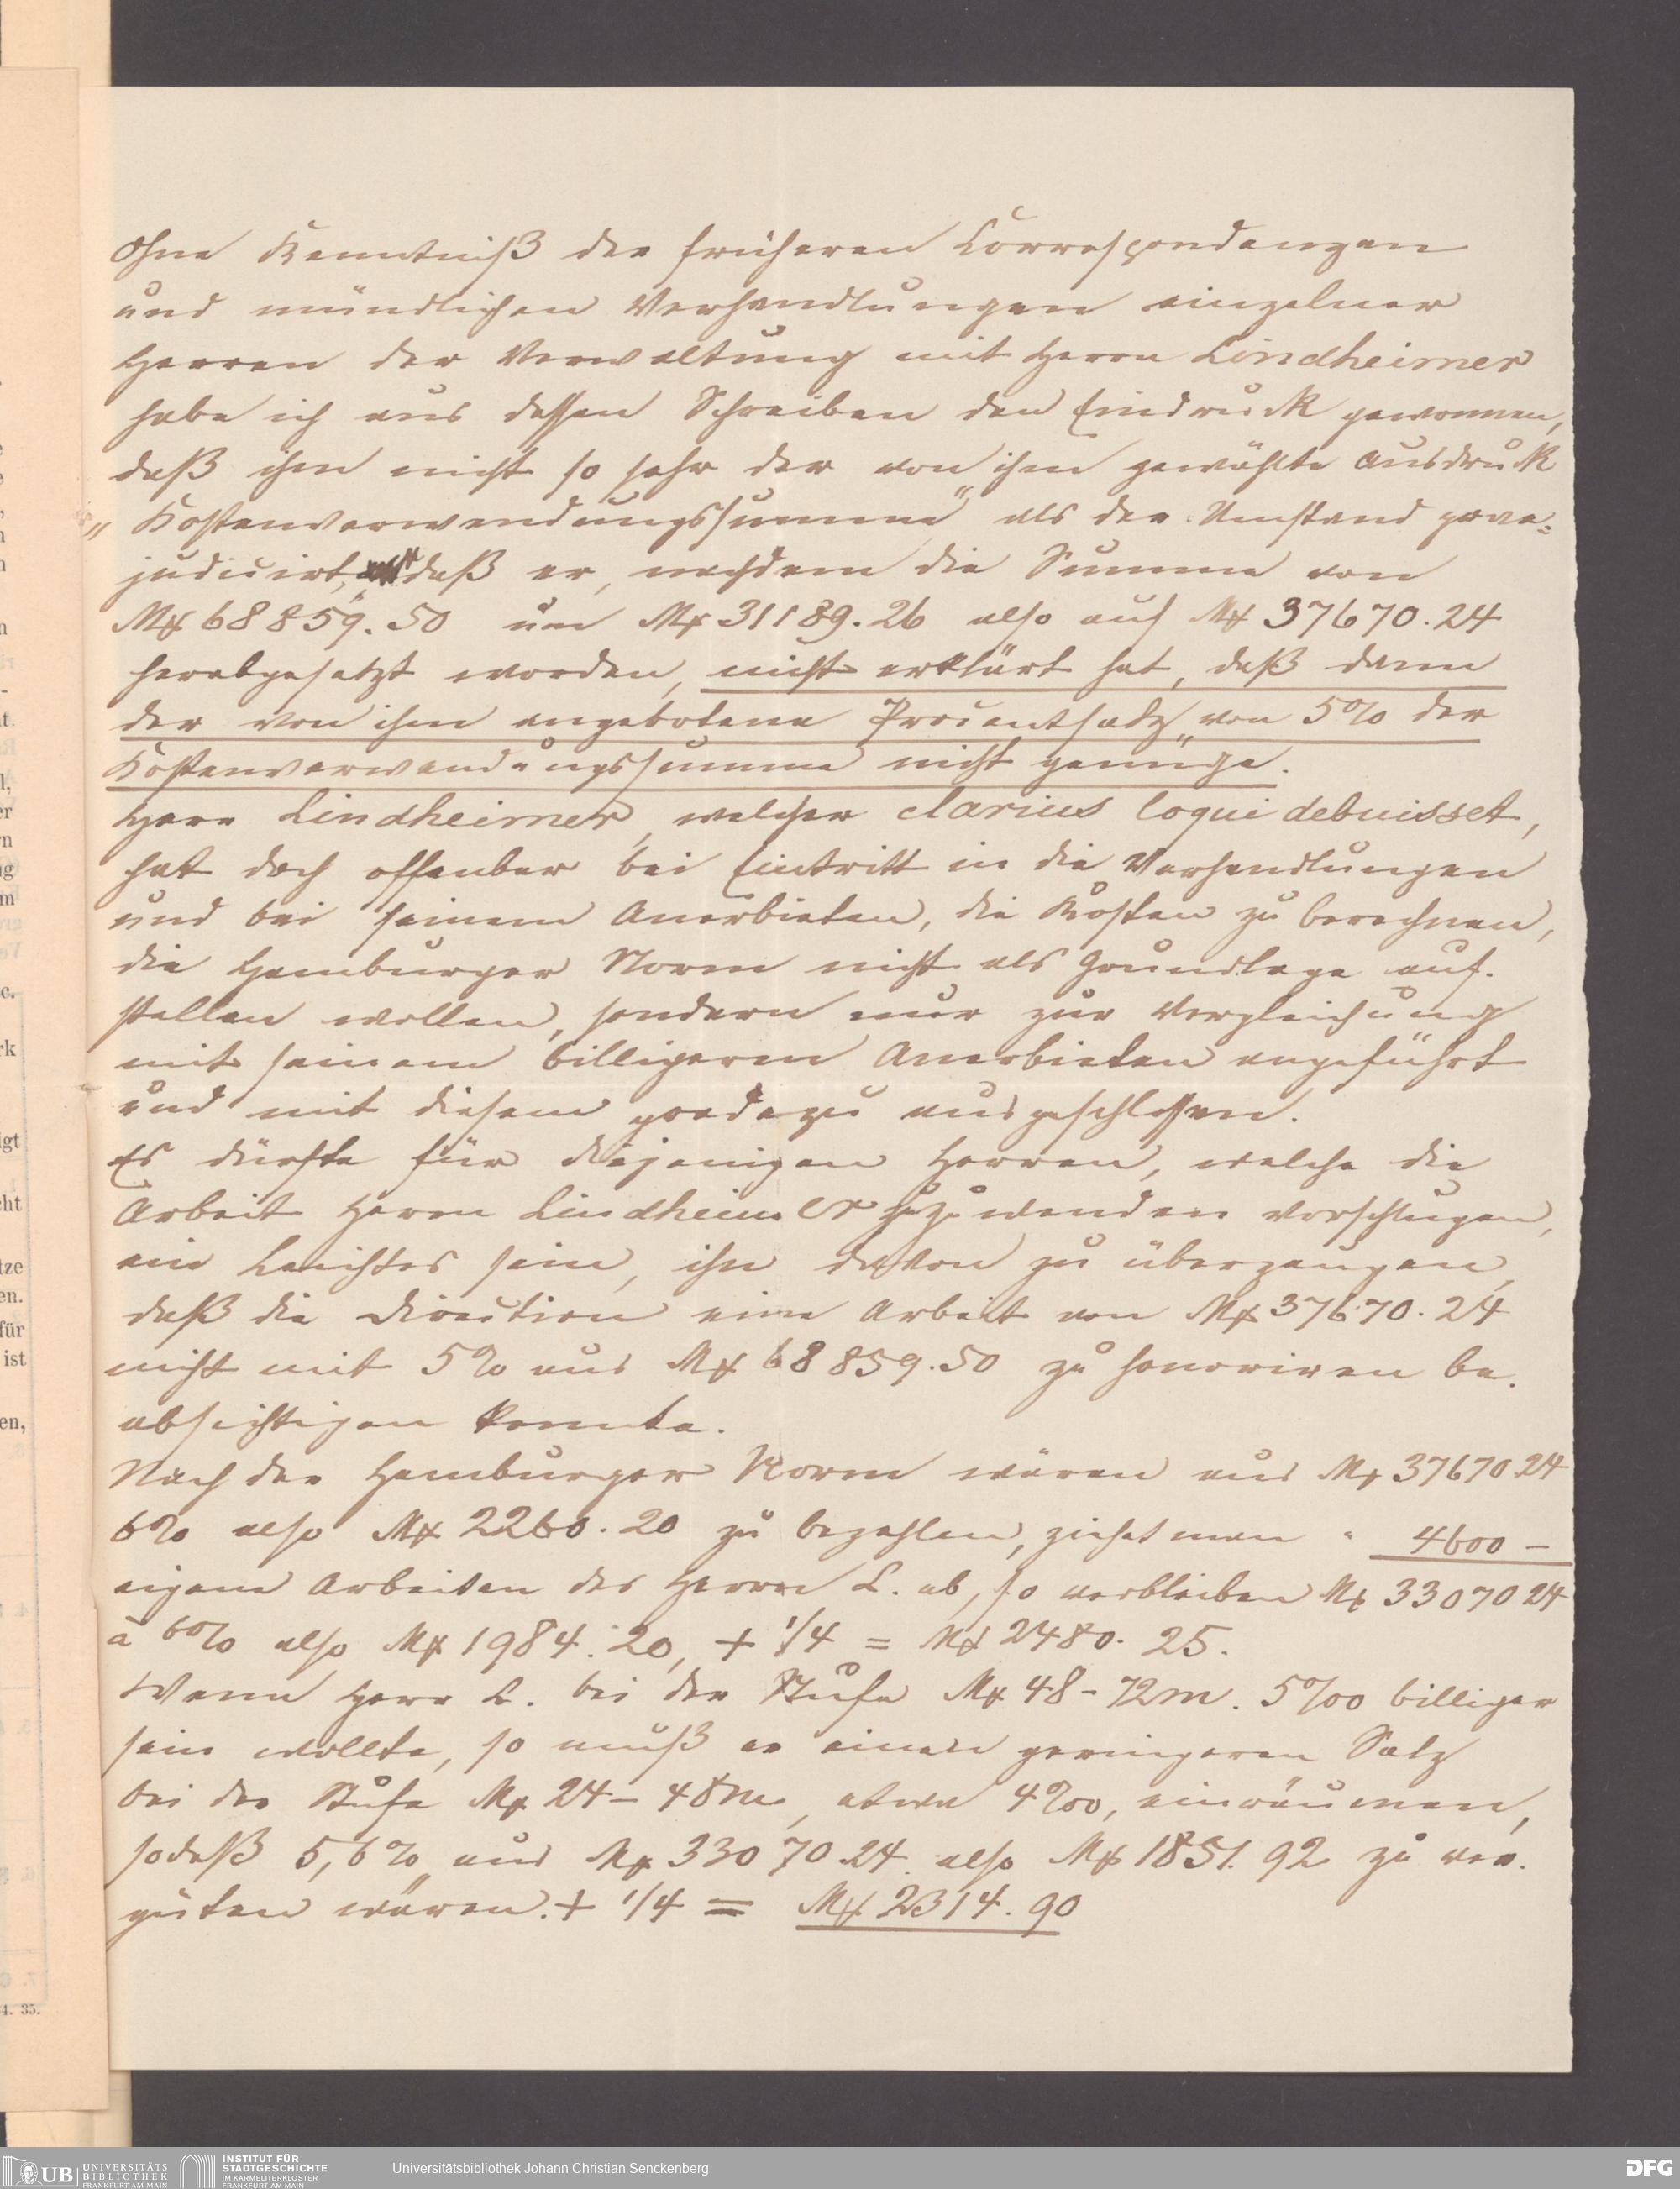 Ohne Kenntniß der früheren Correspondenzen
und mündlichen Verhandlungen einzelner
Herren der Verwaltung mit Herrn Lindheimer
habe ich aus dessen Schreiben den Eindruck gewonnen,
daß ihm nicht so sehr der von ihm gewählte Ausdruck
„Kostenverwendungssumme" als der Umstand prae-
judicirt, daß er, nachdem die Summe von
Mk 68859.50 um Mk 31189.26 also auf Mk 37670.24
herabgesetzt worden, nicht erklärt hat, daß dann
der von ihm angebotene Procentsatz von 5% der
Kostenverwendungssumme nicht genüge.
Herr Lindheimer, welcher clarius loqui debuisset,
hat doch offenbar bei Eintritt in die Verhandlungen
und bei seinem Anerbieten, die Kosten zu berechnen,
die Hamburger Norm nicht als Grundlage auf-
stellen wollen, sondern nur zur Vergleichung
mit seinem billigeren Anerbieten angeführt
und mit diesem geradezu ausgeschlossen.
Es dürfte für diejenigen Herren, welche die
Arbeit Herrn Lindheimer zuzuwenden vorschlugen,
ein Leichtes sein, ihn davon zu überzeugen,
daß die Direction eine Arbeit von Mk 37670.24
nicht mit 5% aus Mk 68859.50 zu honoriren be-
absichtigen konnte.
Nach der Hamburger Norm wären aus Mk 37670 24
6% also Mk 2260.20 zu bezahlen, ziehet man " 4600 —
eigene Arbeiten des Herrn L. ab, so verbleiben Mk 33070 24
à 6% also Mk 1984.20, + 1/4 = Mk 2480.25.
Wenn Herr L. bei der Stufe Mk 48-72m. 5‰ billiger
sein wollte, so muß er einen geringeren Satz
bei der Stufe Mk 24-48m, etwa 4‰, einräumen,
sodaß 5,6% aus Mk 33070 24 also Mk 1851.92 zu ver-
güten wären. + 1/4 = Mk 2314.90
UB UNIVERSITÄTS
BIBLIOTHEK
FRANKFURT AM MAIN
INSTITUT FÜR
STADTGESCHICHTE
IM KARMELITERKLOSTER
FRANKFURT AM MAIN
Universitätsbibliothek Johann Christian Senckenberg
DFG